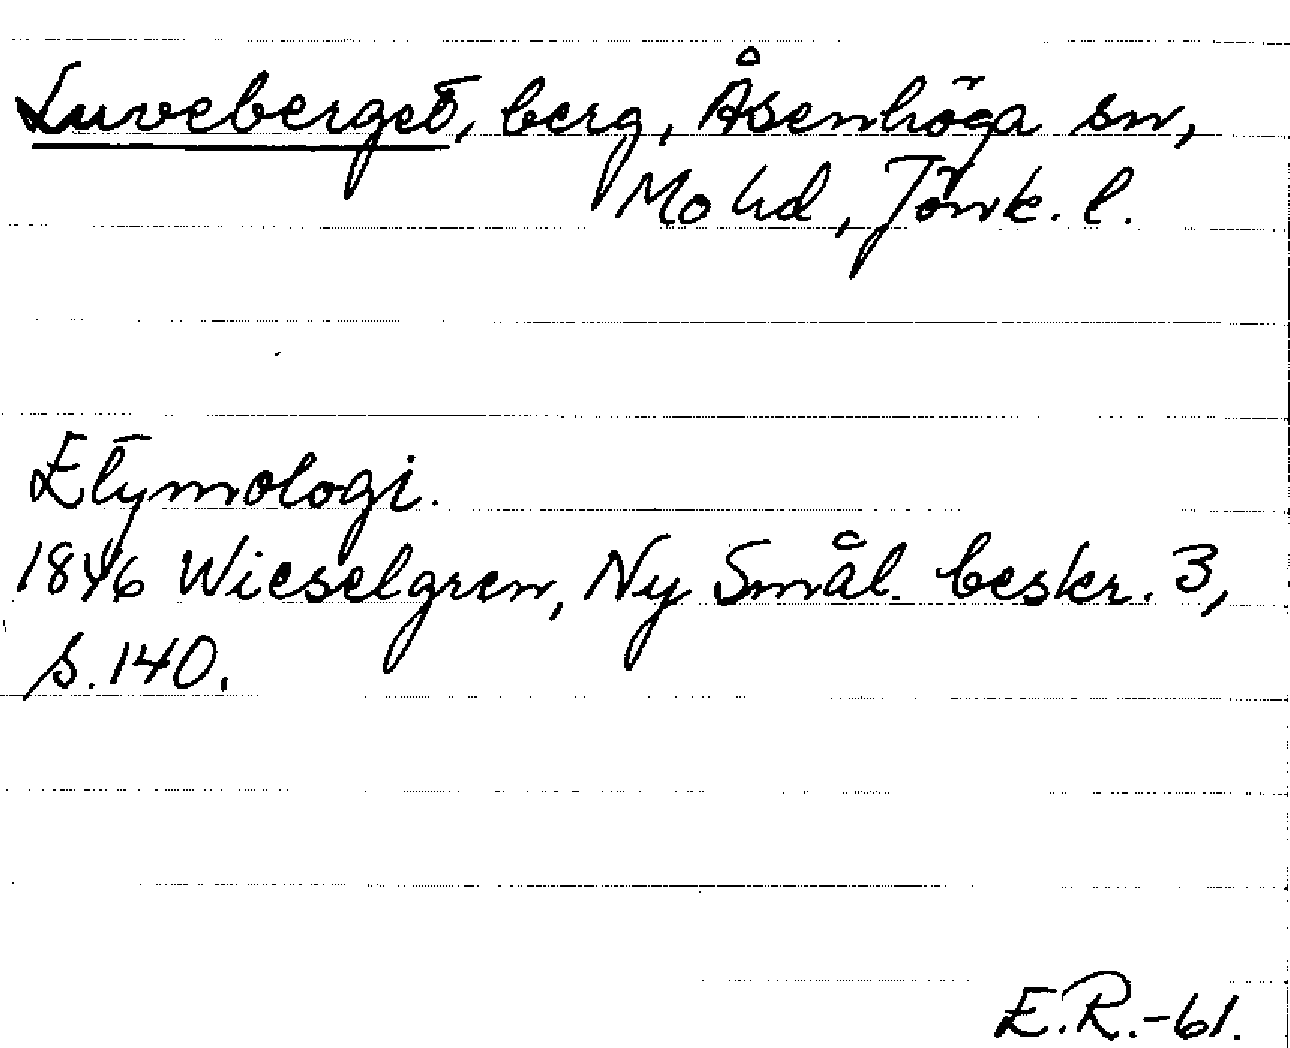 Luveberget, berg, Åsenhöga sn,
Mo hd, Jönk. l.
Etymologi.
1846 Wieselgren, Ny Smål. beskr. 3,
s. 140.
E.R.-61.